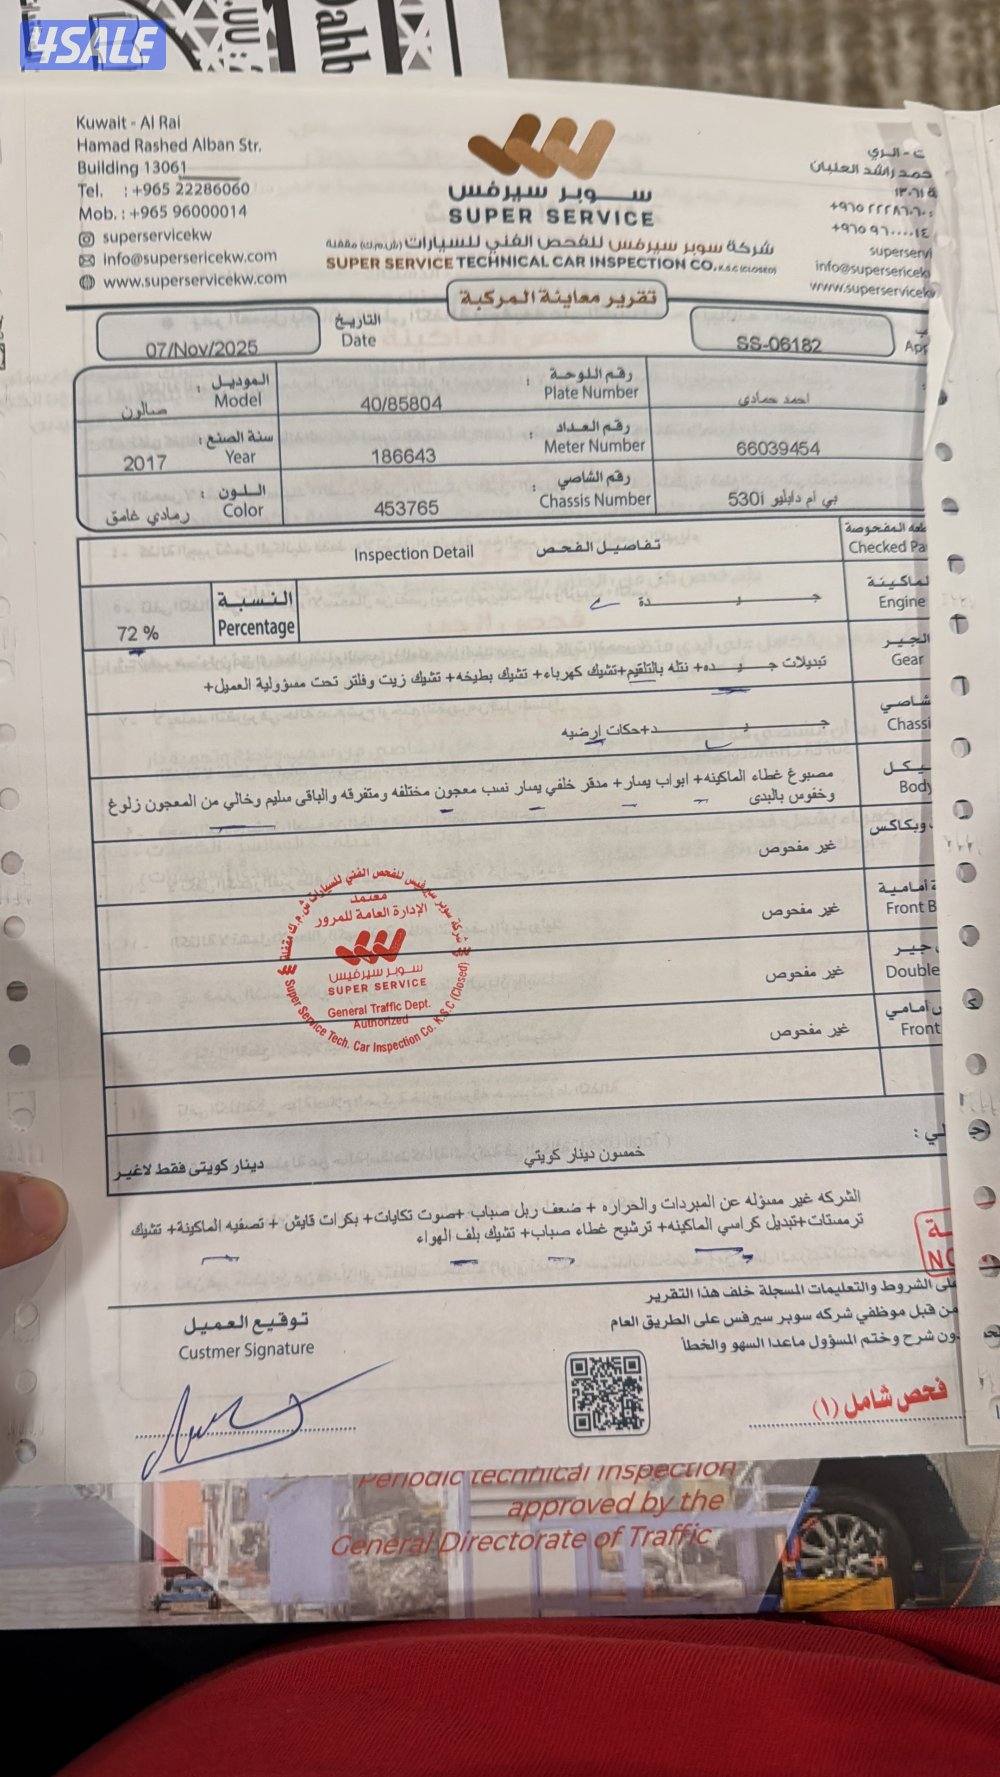 4SALE
Dahb
Kuwait - Al Rai
Hamad Rashed Alban Str.
Building 13061
Tel. : +965 22286060
Mob. : +965 96000014
superservicekw
info@supersericekw.com
www.superservicekw.com
سوبر سيرفس
SUPER SERVICE
شركة سوبر سيرفس للفحص الفني للسيارات (ش.م.ك) مقفلة
SUPER SERVICE TECHNICAL CAR INSPECTION CO. K.S.C (CLOSED)
ت - الري
حمد راشد العلبان
ة ١٣٠٦١
+٩٦٥ ٢٢٢٨٦٠٦٠
+٩٦٥ ٩٦٠٠٠٠١٤
superservi
info@supersericek
www.superservicekw
تقرير معاينة المركبة
07/Nov/2025
التاريخ
Date
SS-06182
App
صالون
الموديل :
Model
40/85804
رقم اللوحة :
Plate Number
احمد حمادي
2017
سنة الصنع :
Year
186643
رقم العداد :
Meter Number
66039454
رمادي غامق
اللون :
Color
453765
رقم الشاصي :
Chassis Number
بي ام دابليو 530i
Inspection Detail
تفاصيل الفحص
طعه المفحوصة
Checked Pa
72 %
النسبة
Percentage
جيدة
لماكينة
Engine
الجير
Gear
تبديلات جيده+ نتله بالتلقيم+تشيك كهرباء+ تشيك بطيخه+ تشيك زيت وفلتر تحت مسؤولية العميل+
شاصي
Chassi
جيد+حكات ارضيه
يكل
Body
مصبوغ غطاء الماكينه+ ابواب يسار+ مدقر خلفي يسار نسب معجون مختلفه ومتفرقه والباقى سليم وخالي من المعجون زلوغ
وخفوس بالبدى
وبكاكس
غير مفحوص
ة أمامية
Front B
غير مفحوص
جير
Double
غير مفحوص
ي أمامي
Front
غير مفحوص
شركة سوبر سيرفس للفحص الفني للسيارات ش.م.ك مقفلة
معتمد
الإدارة العامة للمرور
سوبر سيرفيس
SUPER SERVICE
General Traffic Dept.
Authorized
Super Service Tech. Car Inspection Co. K.S.C (Closed)
لي :
خمسون دينار كويتي
دينار كويتى فقط لاغير
الشركه غير مسؤله عن المبردات والحراره + ضعف ربل صباب +صوت تكايات+ بكرات قايش + تصفيه الماكينة+ تشيك
ترمستات+تبديل كراسي الماكينه+ ترشيح غطاء صباب+ تشيك بلف الهواء
ـة
NO
لى الشروط والتعليمات المسجلة خلف هذا التقرير
من قبل موظفي شركه سوبر سيرفس على الطريق العام
دون شرح وختم المسؤول ماعدا السهو والخطأ
توقيع العميل
Custmer Signature
فحص شامل (١)
Periodic technical inspection
approved by the
General Directorate of Traffic